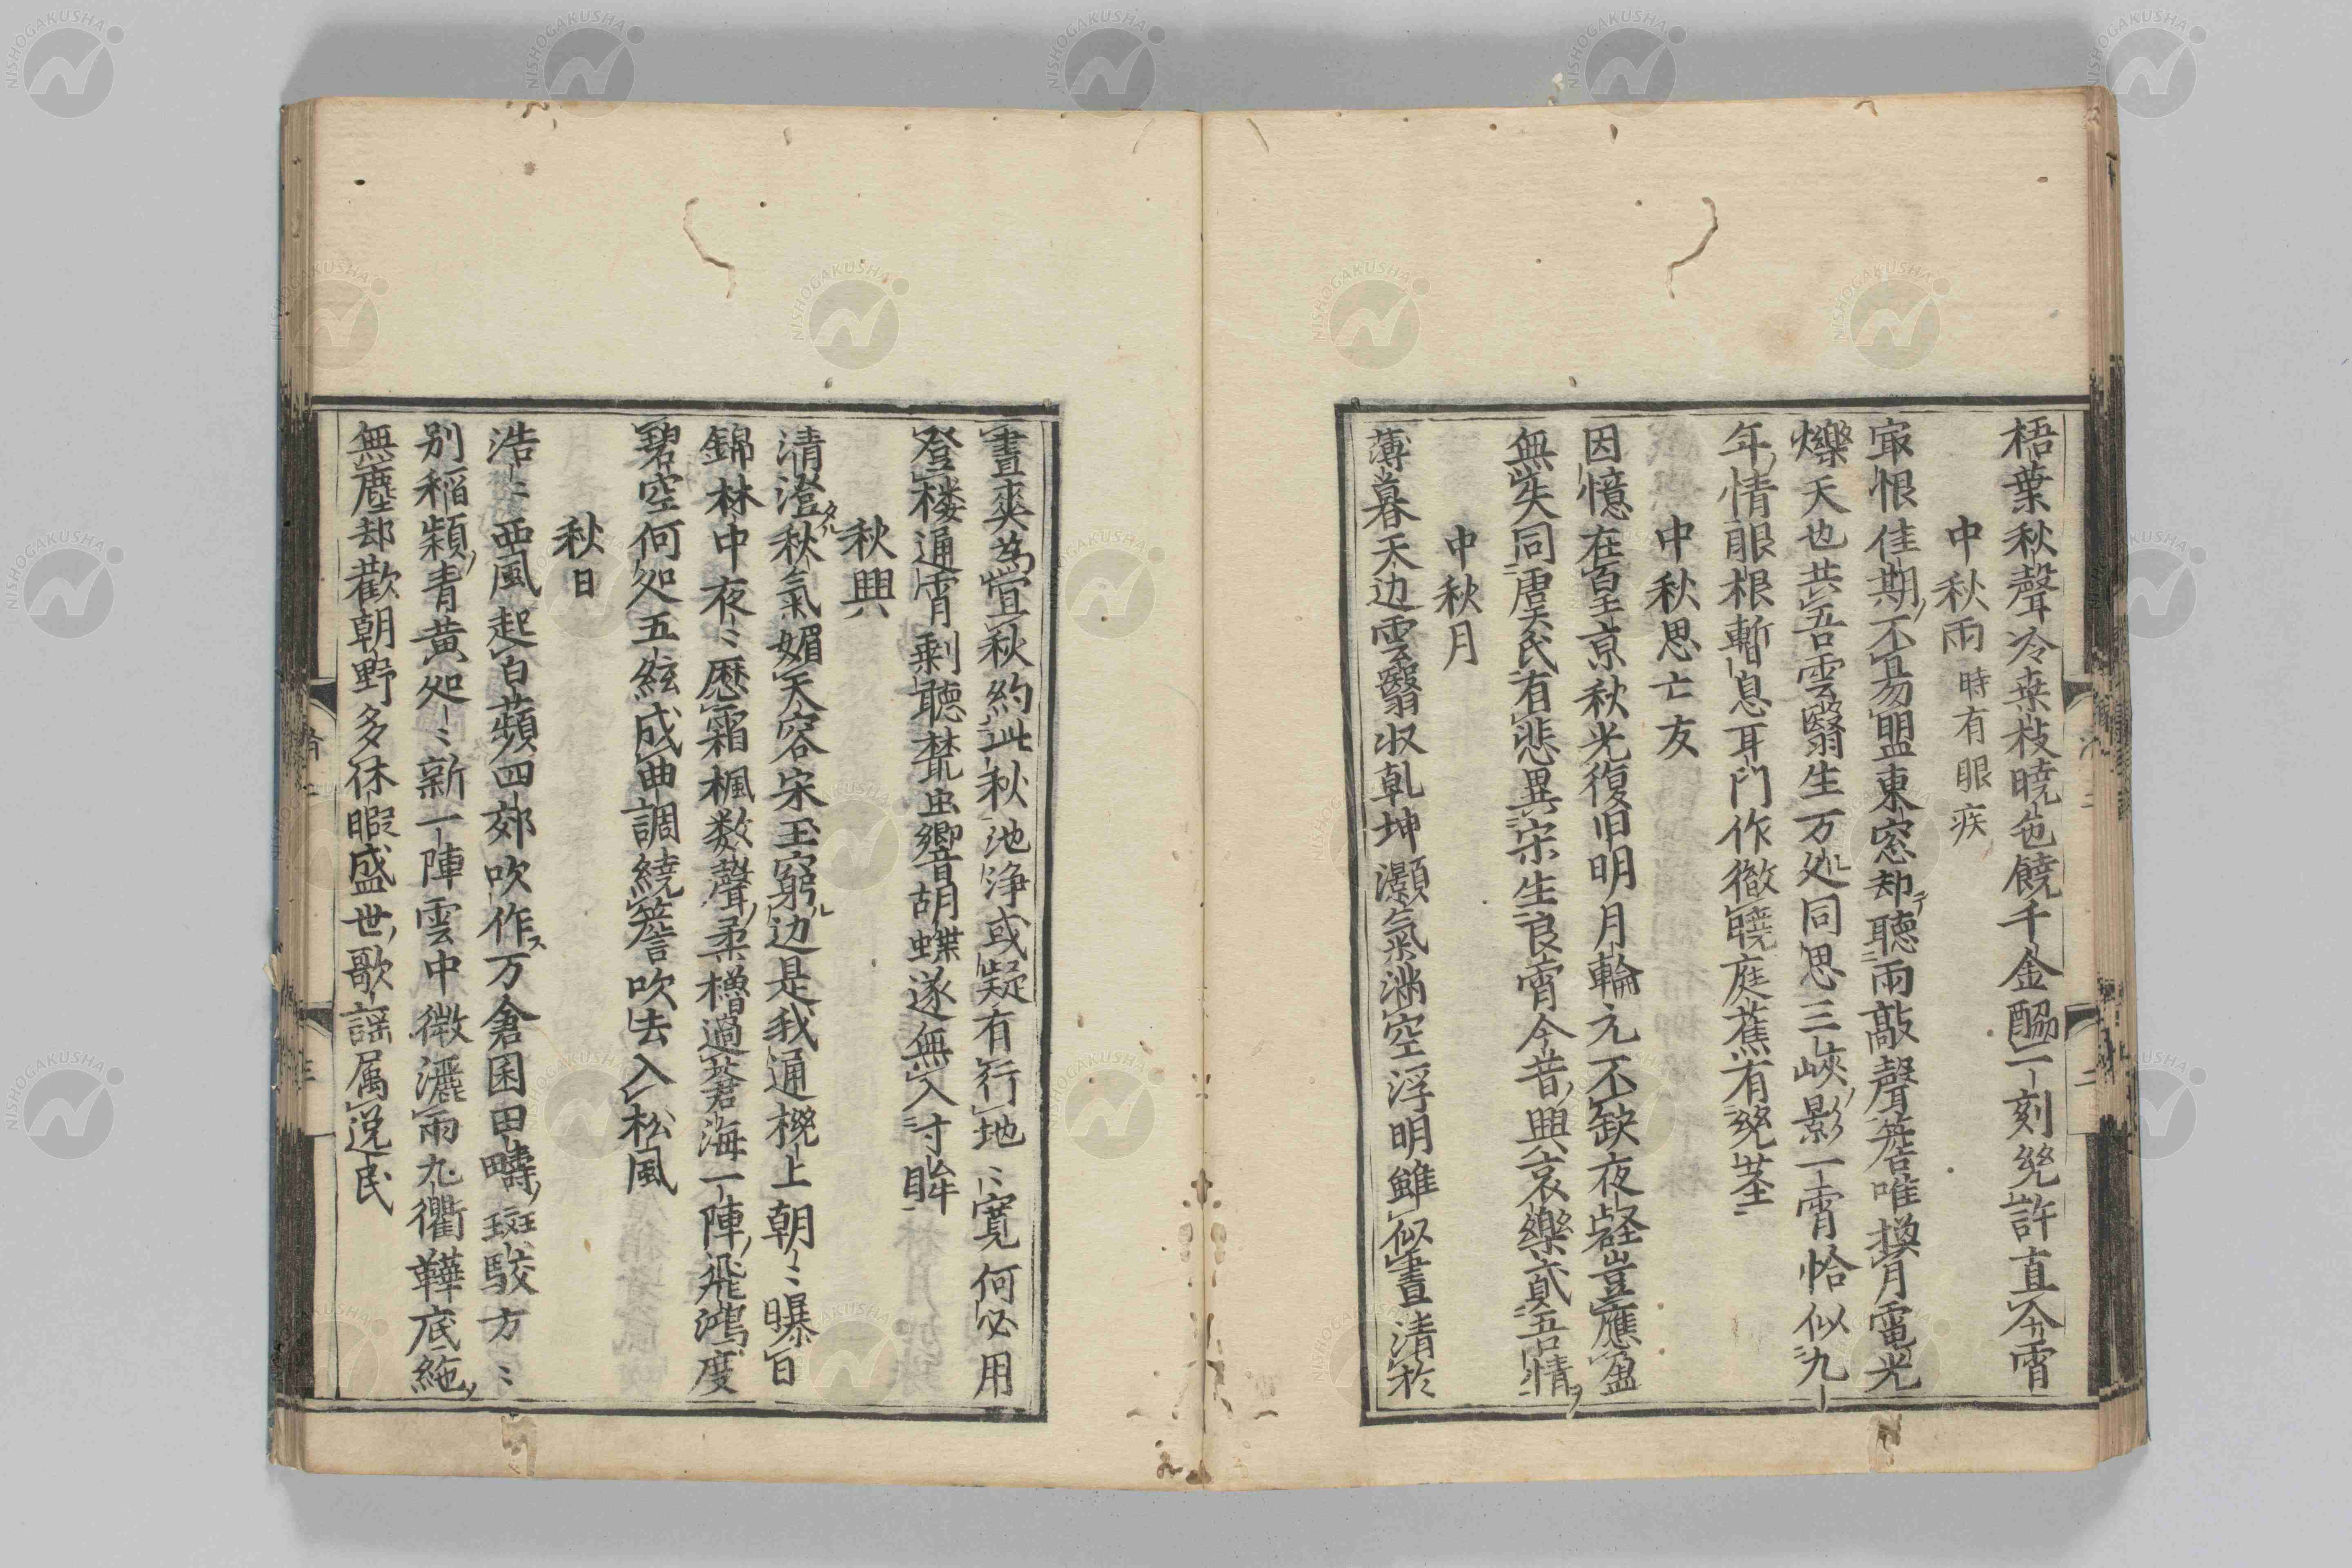 梧葉秋聲冷桒枝曉色饒千金酾一刻纔許直今宵
中秋雨 時有眼疾
㝡恨佳期不易盟東窓却聴雨敲聲簷唯換月電光
爍天也共吾雲翳生万処同思三峽影一宵恰似九
年情眼根暫息耳門作徹曉庭蕉有幾莖
中秋思亡友
因憶在皇京秋光復旧明月輪元不缺夜壑豈應盈
無失同虞氏有悲異宋生良宵今昔興哀樂貳吾情
中秋月
薄暮天边雲翳収乾坤灝氣満空浮明雖似晝清於
晝爽為宜秋約此秋池浄或疑有行地〻寛何必用
登楼通宵剰聴椘虫響胡蝶遂無入寸眸
秋興
清澄秋氣媚天容宋玉窮边是我通櫈上朝〻曝白
錦林中夜〻歴霜楓数聲柔櫓過蒼海一陣飛鴻度
碧空何処五絃成曲調繞簷吹去入松風
秋日
浩〻西風起白蘋四郊吹作万倉囷田疇斑駮方〻
别稲穎青黄処〻新一陣雲中微灑雨九衢鞾底絶
無塵却歡朝野多休暇盛世歌謡属逸民